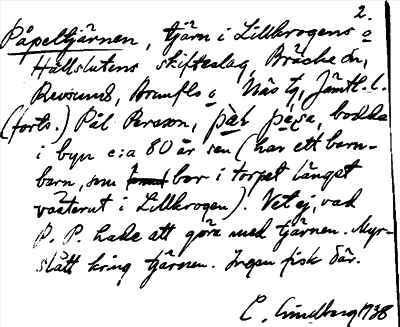 2.
Påpeltjärnen, tjärn i Lillkrogens o
Hällslutens skifteslag, Bräcke sn,
Revsunds, Brunflo o Näs tg, Jämtl. l.
(forts.) Pål Persson, på̀l pèsa, bodde
i byn c:a 80 år sen (har ett barn-
barn, som bor i torpet längst
västerut i Lillkrogen). Vet ej, vad
P. P. hade att göra med tjärnen. Myr-
slått kring tjärnen. Ingen fisk där.
C. Lindberg 1738